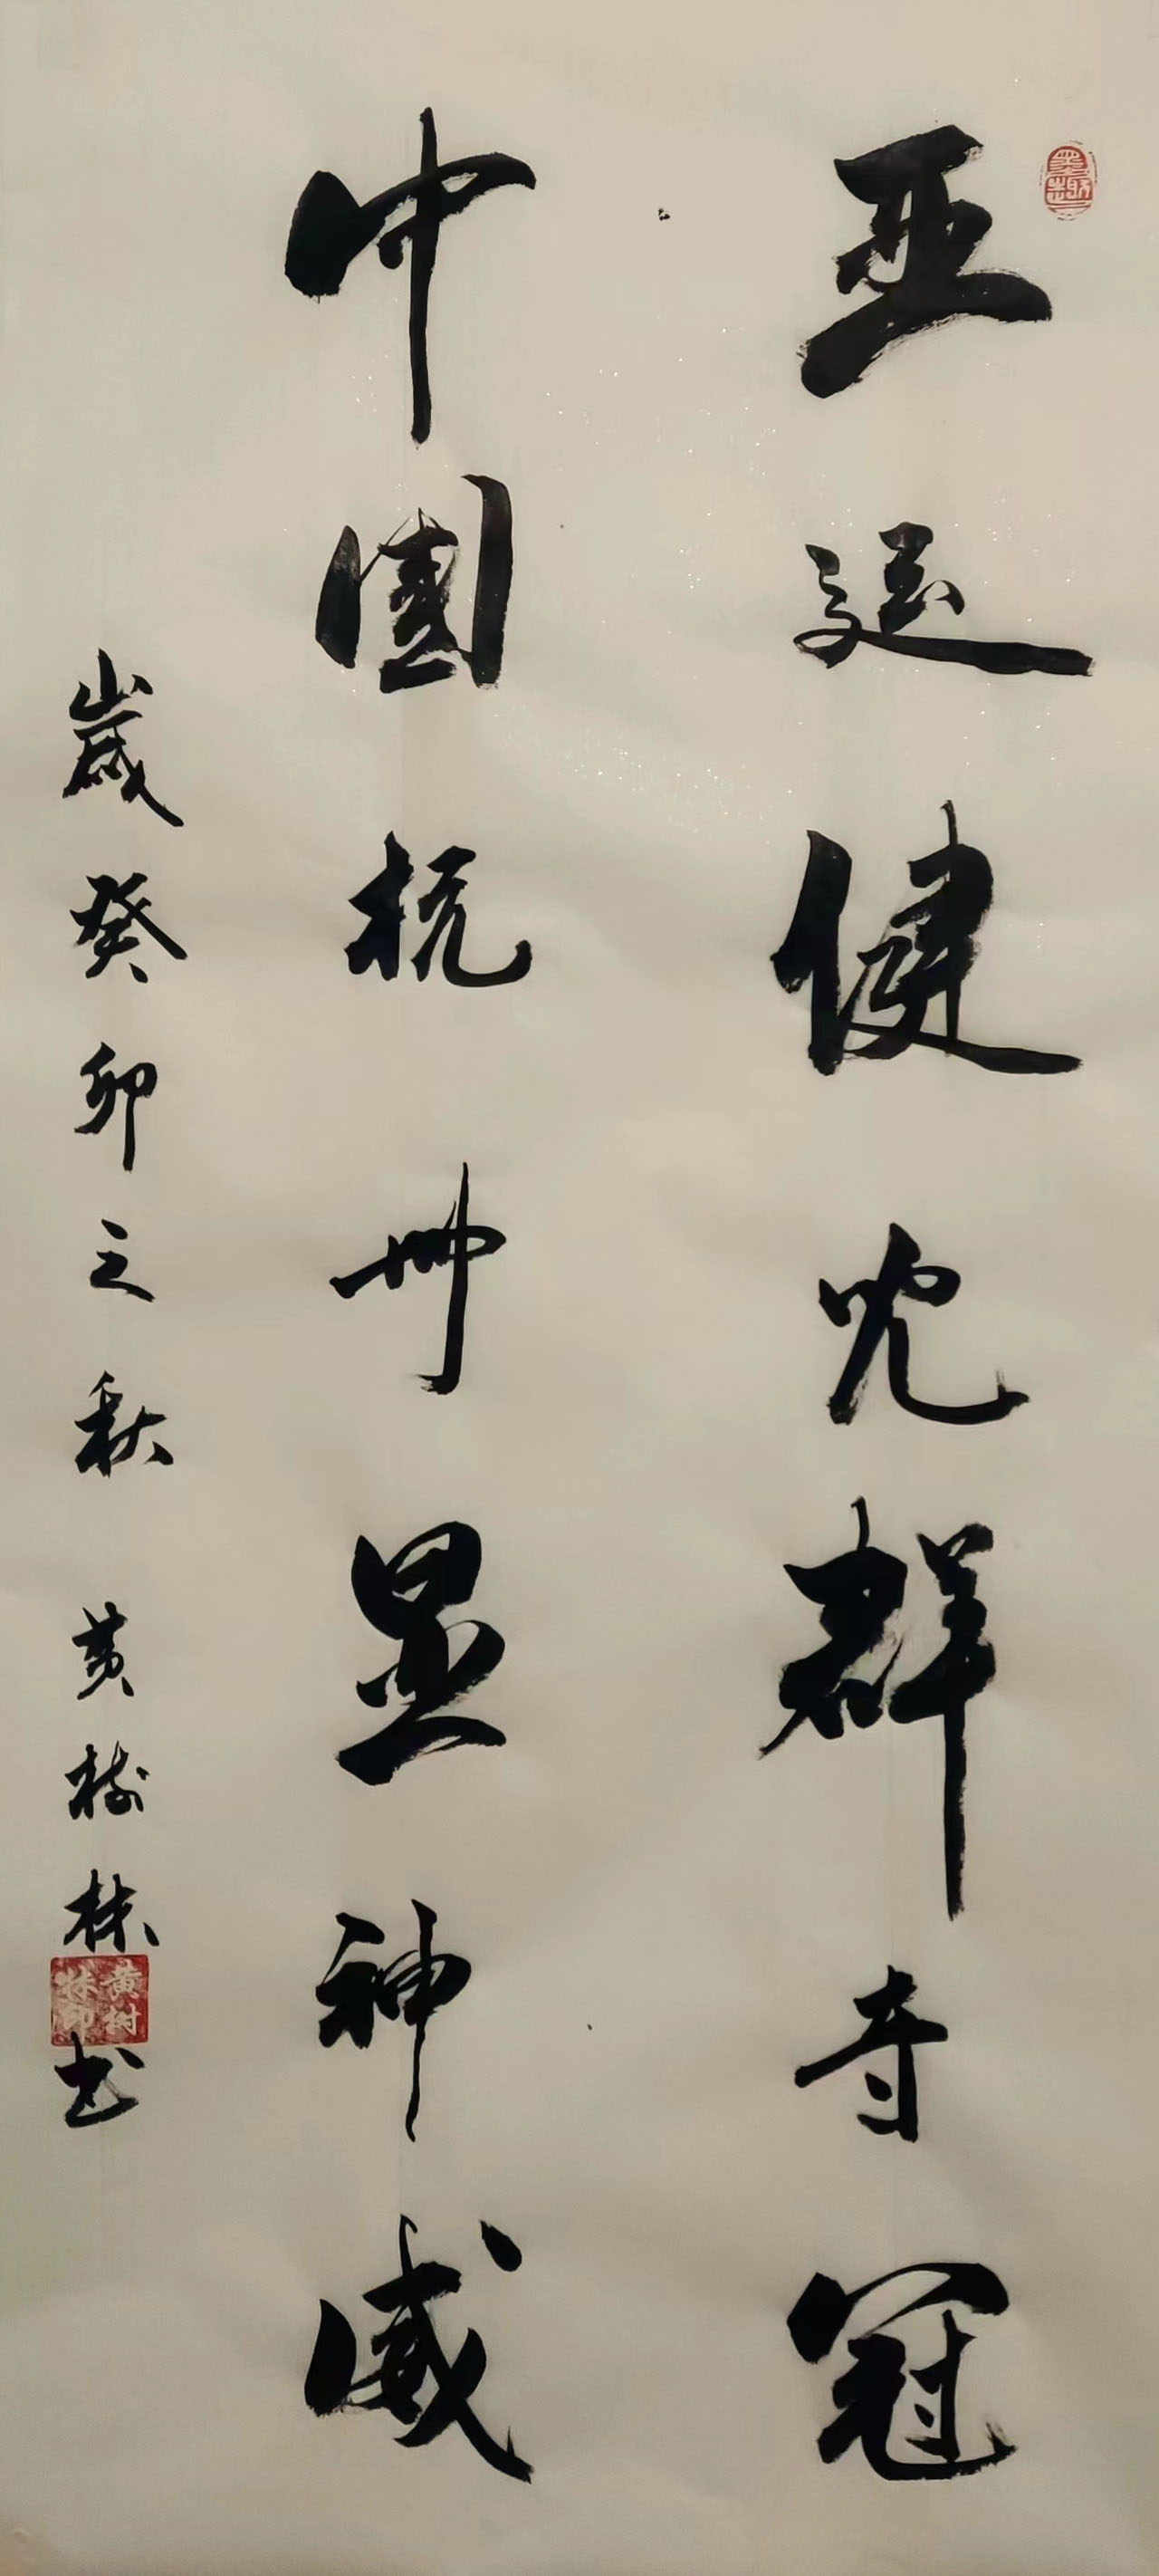 亚运健兒群夺冠
中國杭州显神威
歲癸卯之秋 黄树林书
黄树林印